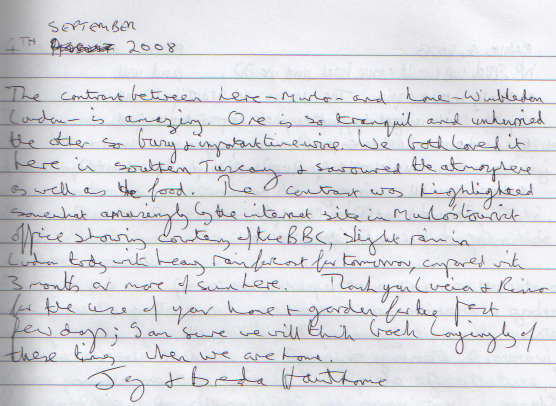 SEPTEMBER
4TH August 2008
The contrast between here - Murlo - and home - Wimbledon
London - is amazing. One is so tranquil and unhurried
the other so busy & important time wise. We both loved it
here in southern Tuscany & savoured the atmosphere
as well as the food. The contrast was highlighted
somewhat amusingly by the internet site in Murlo's tourist
office showing courtesy of the BBC, slight rain in
London today with heavy rain forecast for tomorrow, compared with
3 months or more of sun here. Thank you Lucia & Rino
for the use of your home & garden for the past
few days; I am sure we will think back longingly of
these times when we are home.
Jey & Breda Hawthorne